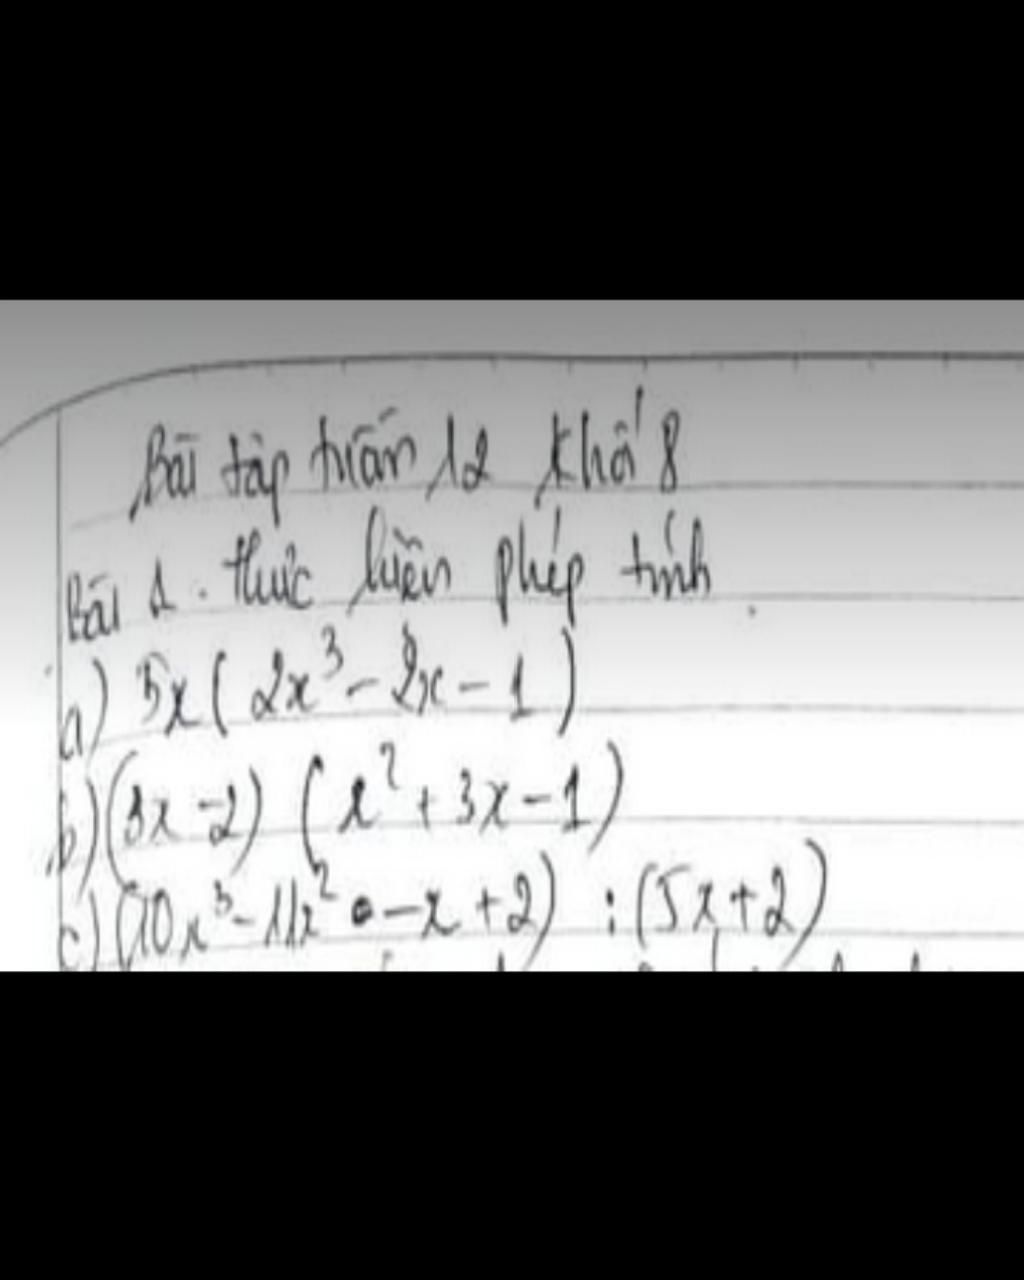 Bài tập tuần 12 khối 8
Bài 1. thực hiện phép tính
a) 5x( 2x³ - 2x - 1 )
b) (3x - 2) ( x² + 3x - 1 )
c) (10x³ - 11x² - x + 2) : (5x + 2)